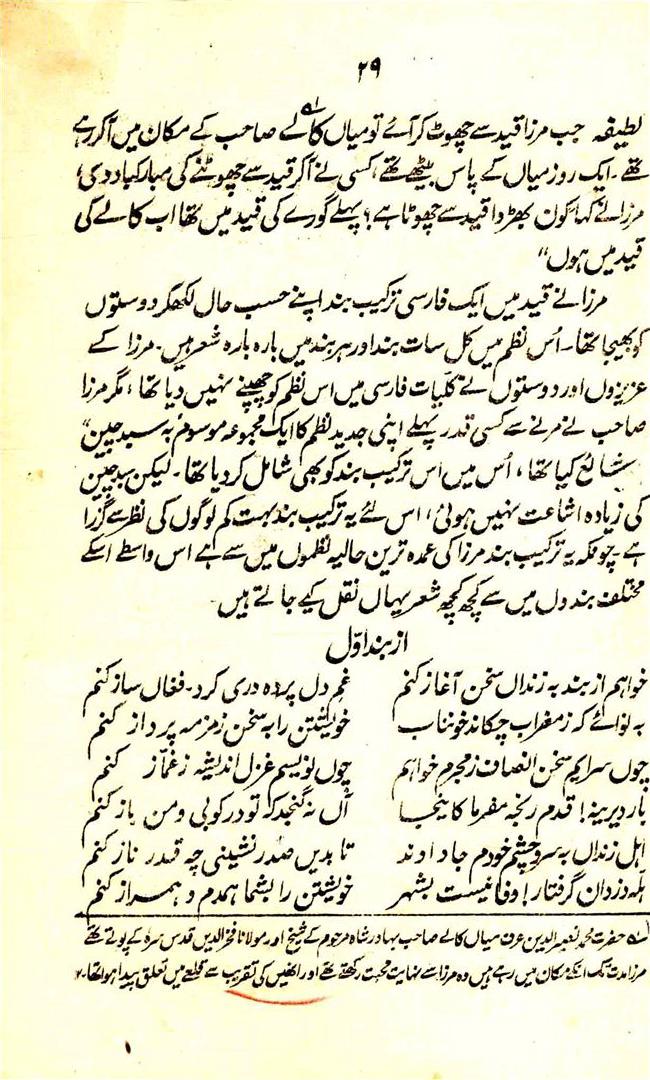 ۲۹
لطیفہ جب مرزا قید سے چھوٹ کر آئے تو میاں کالے لہ صاحب کے مکان میں آکر رہے
تھے۔ ایک روز میاں کے پاس بیٹھے تھے، کسی نے آکر قید سے چھوٹنے کی مبارکباد دی؛
مرزا نے کہا "کون بھڑوا قید سے چھوٹا ہے؟ پہلے گورے کی قید میں تھا اب کالے کی
قید میں ہوں"
مرزا نے قید میں ایک فارسی ترکیب بند اپنے حسب حال لکھکر دوستوں
کو بھیجا تھا۔ اُس نظم میں کل سات بند اور ہر بند میں بارہ بارہ شعر ہیں۔ مرزا کے
عزیزوں اور دوستوں نے کلیات فارسی میں اس نظم کو چھپنے نہیں دیا تھا، مگر مرزا
صاحب نے مرنے سے کسی قدر پہلے اپنی جدید نظم کا ایک مجموعہ موسوم بہ سبد چین"
شائع کیا تھا، اُس میں اس ترکیب بند کو بھی شامل کردیا تھا۔ لیکن سبد چین
کی زیادہ اشاعت نہیں ہوئی، اس لئے یہ ترکیب بند بہت کم لوگوں کی نظر سے گزرا
ہے۔ چونکہ یہ ترکیب بند مرزا کی عمدہ ترین حالیہ نظموں میں سے ہے اس واسطے اسکے
مختلف بندوں میں سے کچھ کچھ شعر یہاں نقل کیے جاتے ہیں۔
از بند اوّل
خواہم از بند بہ زنداں سخن آغاز کنم غم دل پردہ دری کرد۔ فغاں ساز کنم
بہ نوائے کہ ز مضراب چکاند خونناب خویشتن را بہ سخن زمزمہ پرداز کنم
چوں سرایم سخن انصاف ز مجرم خواہم چوں نویسم غزل اندیشہ ز غمّاز کنم
یار دیرینہ! قدم رنجہ مفرما کاینجا آں نہ گنجد کہ تو در کوبی و من باز کنم
اہل زنداں بہ سر و چشم خودم جا دادند تا بدیں صدر نشینی چہ قدر ناز کنم
ہلہ دزدان گرفتار! وفا نیست بشہر خویشتن را بشما ہمدم و ہمراز کنم
لہ حضرت محمد نصیر الدین عرف میاں کالے صاحب بہادر شاہ مرحوم کے شیخ اور مولانا فخر الدین قدس سرہ کے پوتے تھے
مرزا مدت تک انکے مکان میں رہے ہیں وہ مرزا سے نہایت محبت رکھتے تھے اور انھیں کی تقریب سے قلعے میں تعلق پیدا ہوا تھا۔۱۲